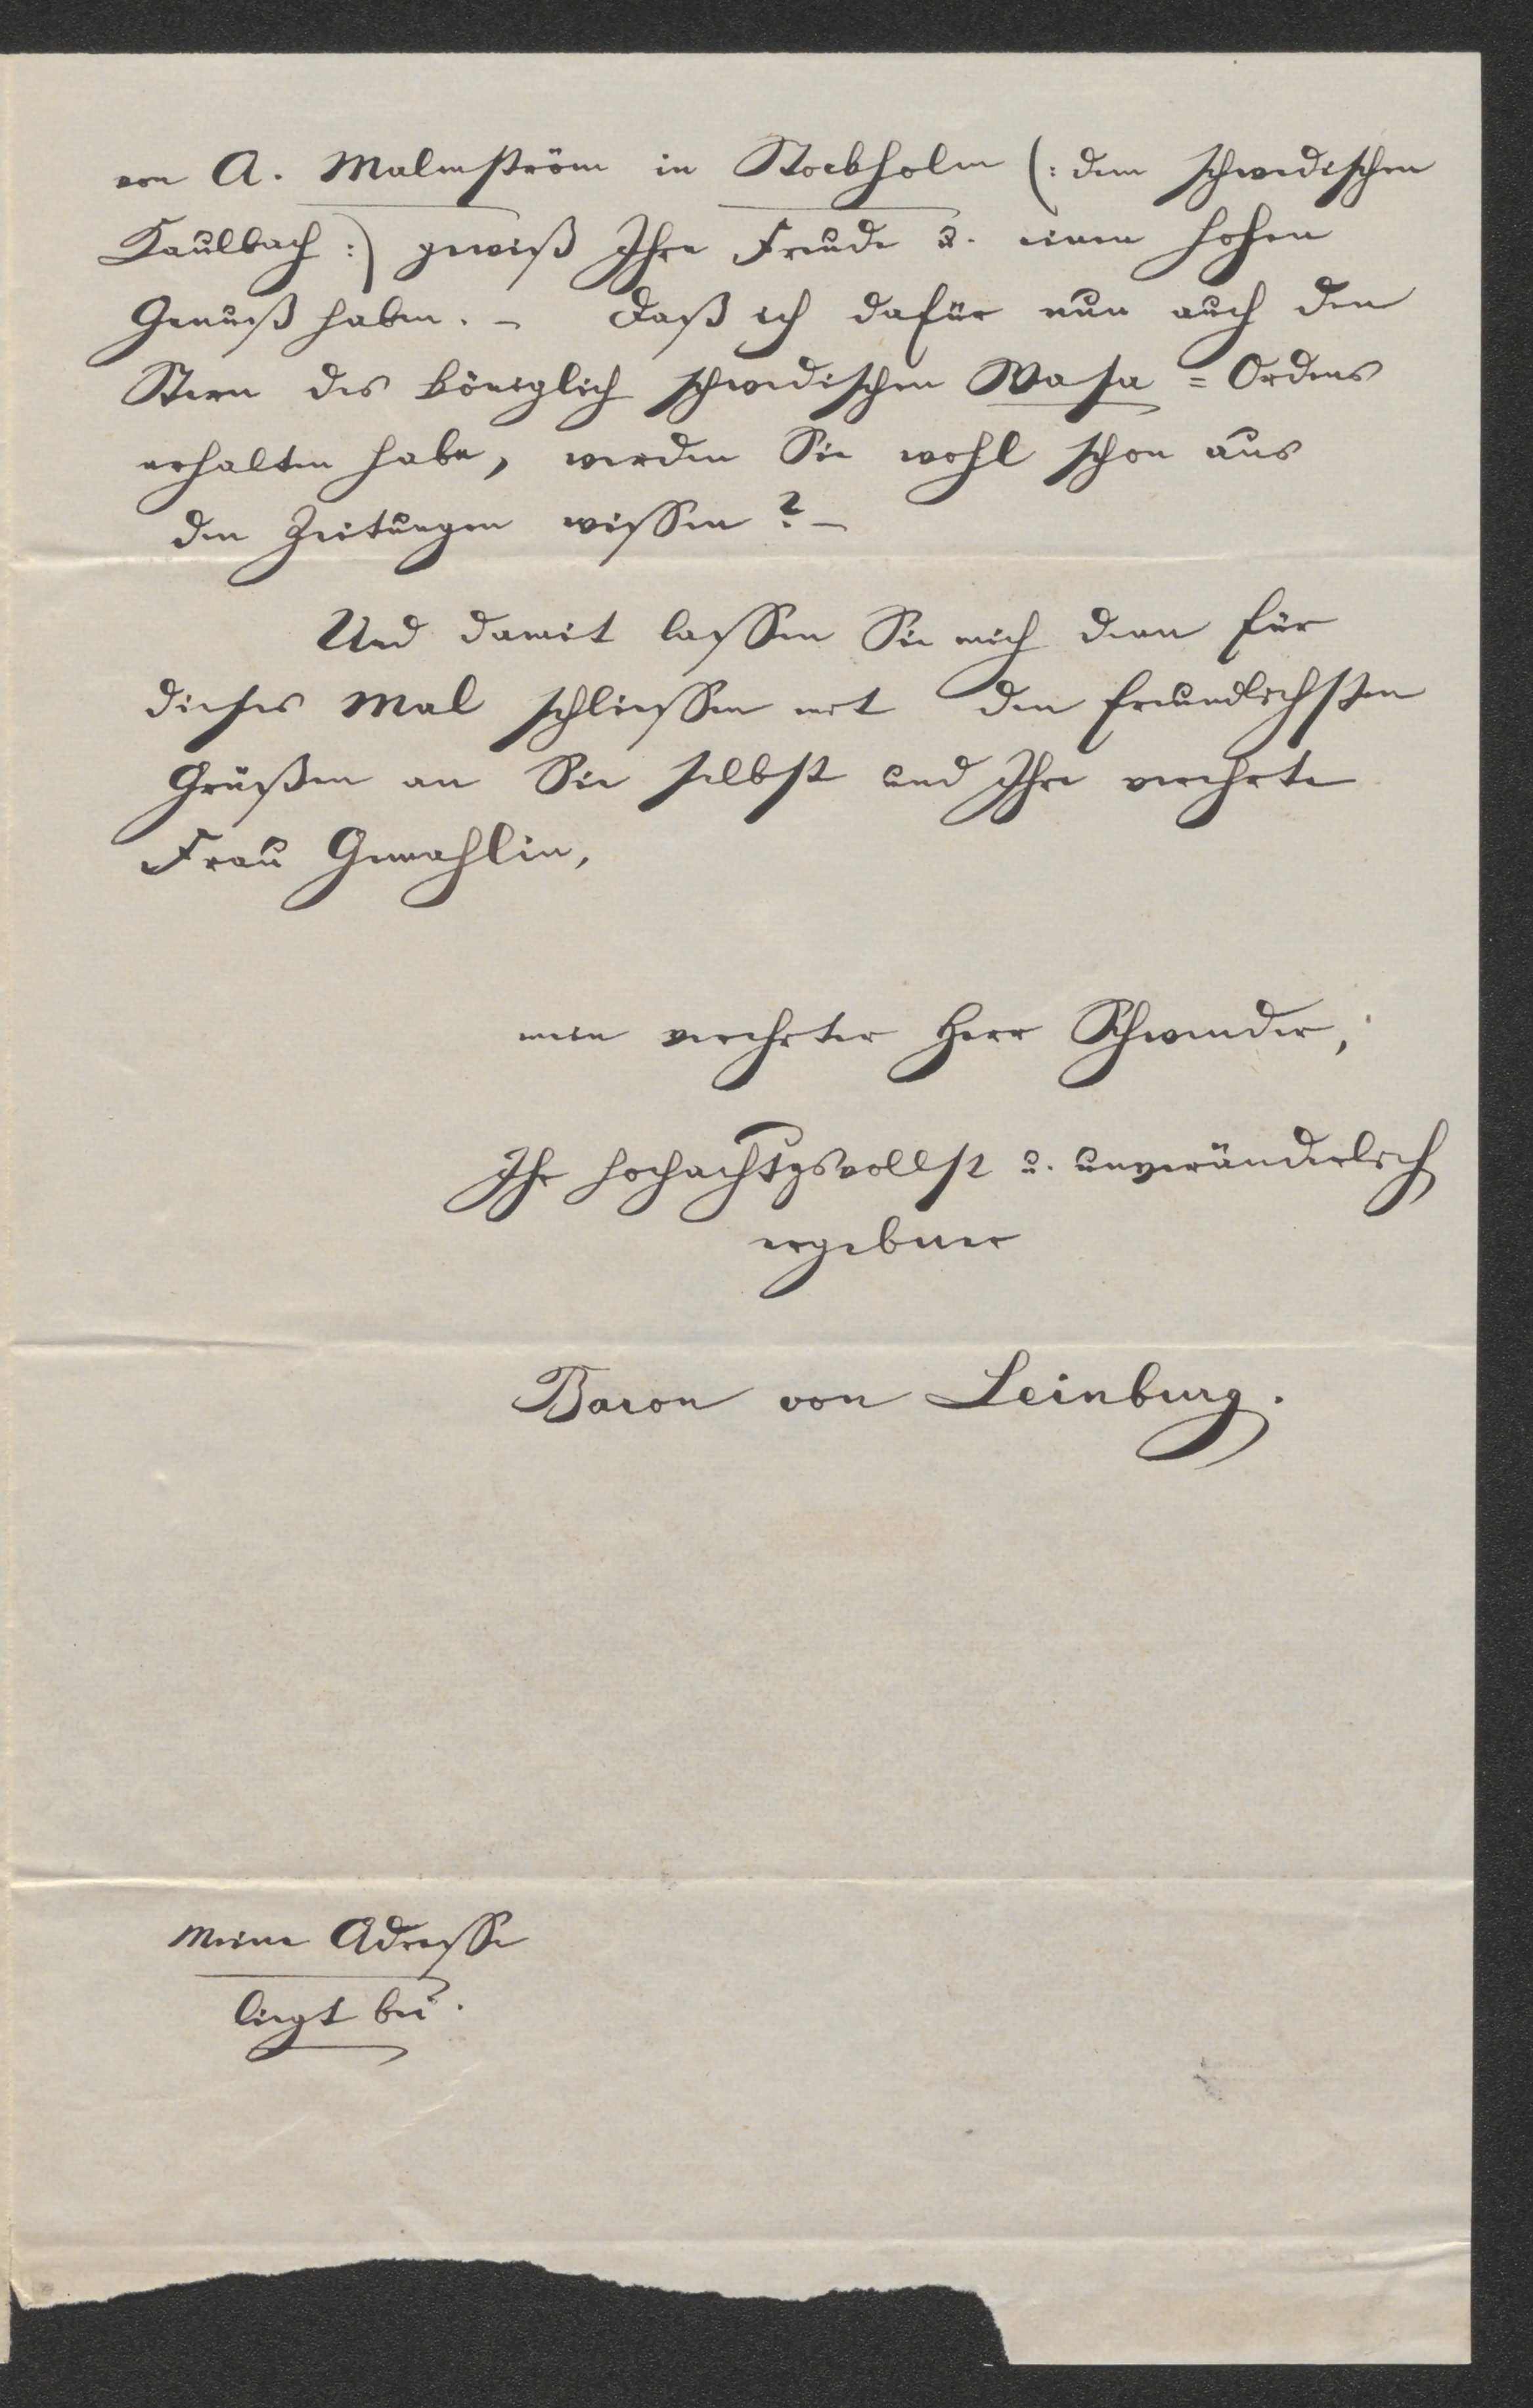 von A. Malmström in Stockholm (: dem schwedischen
Kaulbach :) gewiß Ihre Freude u. einen hohen
Genuß haben. – Daß ich dafür nun auch den
Stern des königlich schwedischen Wasa = Ordens
erhalten habe, werden Sie wohl schon aus
den Zeitungen wissen? –
Und damit lassen Sie mich denn für
dieses Mal schliessen mit den freundlichsten
Grüßen an Sie selbst und Ihre verehrte
Frau Gemahlin,
mein verehrter Herr Schwender,
Ihr hochachtgsvollst u. unveränderlich
ergebner
Baron von Leinburg.
Meine Adresse
liegt bei.